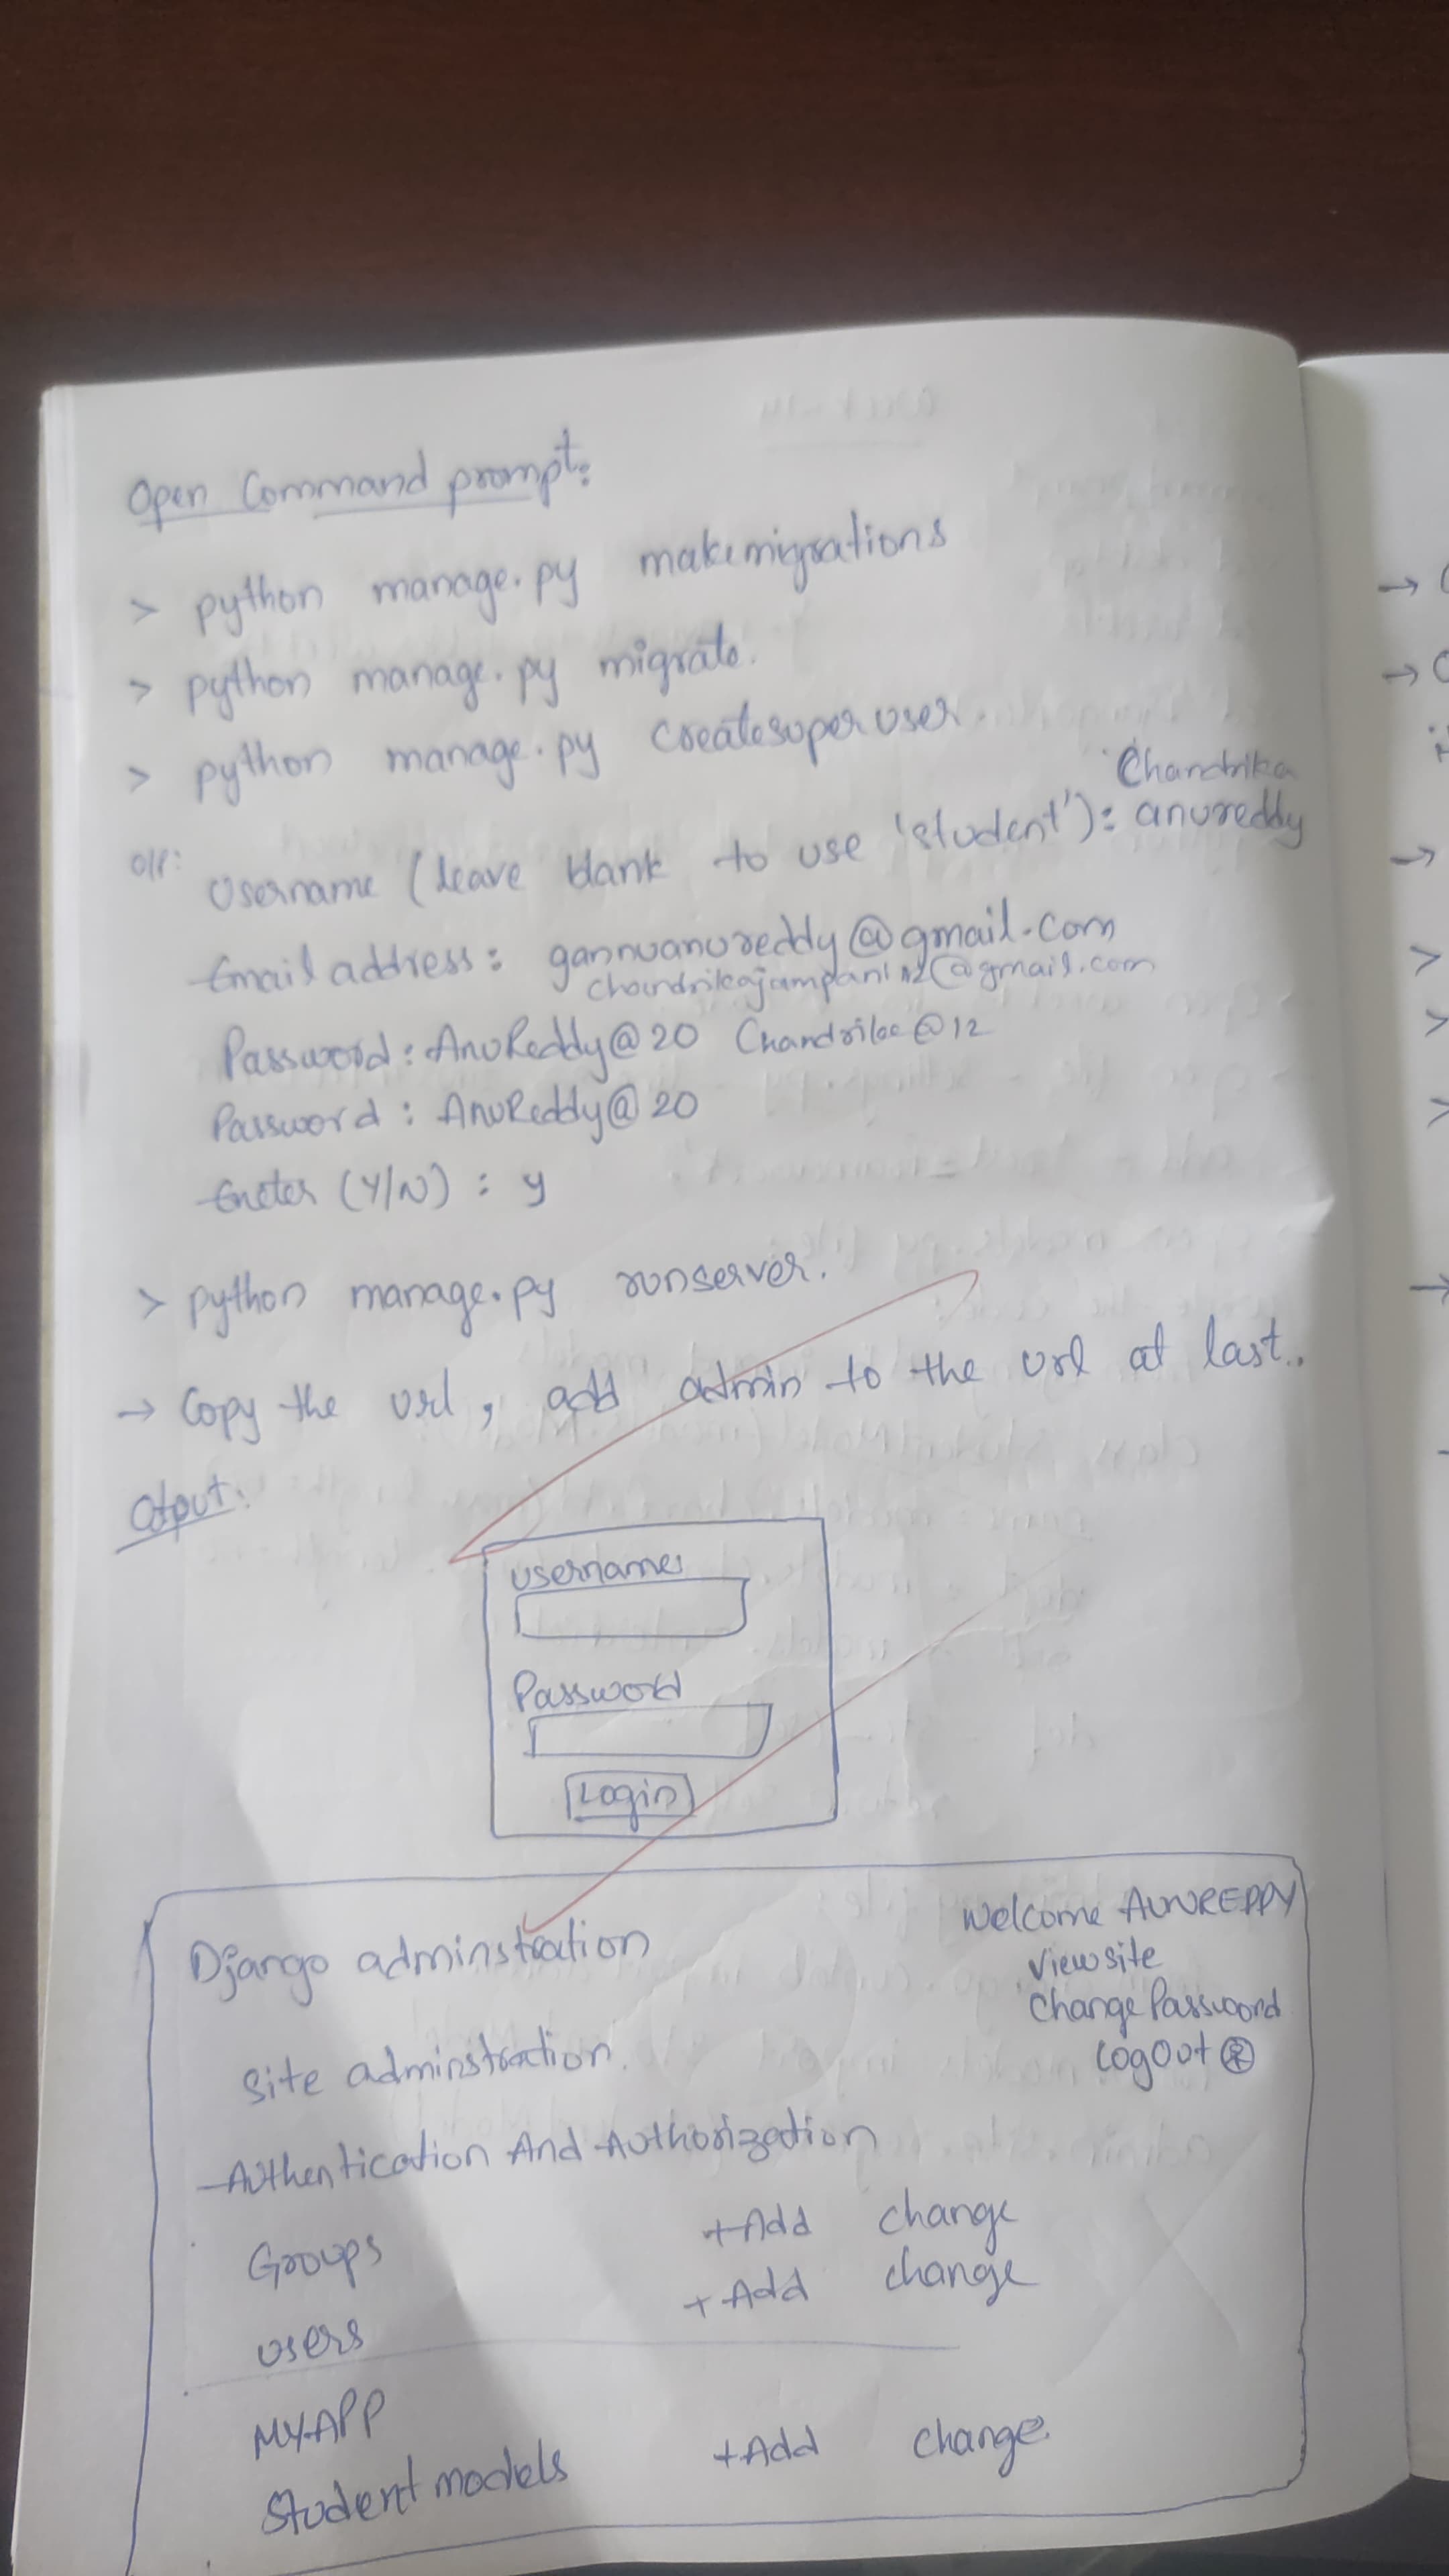 Open Command prompt:
> python manage.py makemigrations
> python manage.py migrate.
> python manage.py createsuperuser.
Chandrika
O/P: Username (leave blank to use 'student'): anureddy
Email address: gannuanureddy@gmail.com
@gmail.com
Password: AnuReddy@20 Chandrika@12
Password: AnuReddy@20
Eneter (Y/N) : y
> python manage.py runserver.
→ Copy the url, add admin to the url at last.
Otput:
username
Password
Login
Django adminstration
Welcome ANUREDDY
View site
Change Password
LogOut
Site adminstration.
Authentication And Authorization
Groups +Add change
users +Add change
MYAPP
Student models +Add change